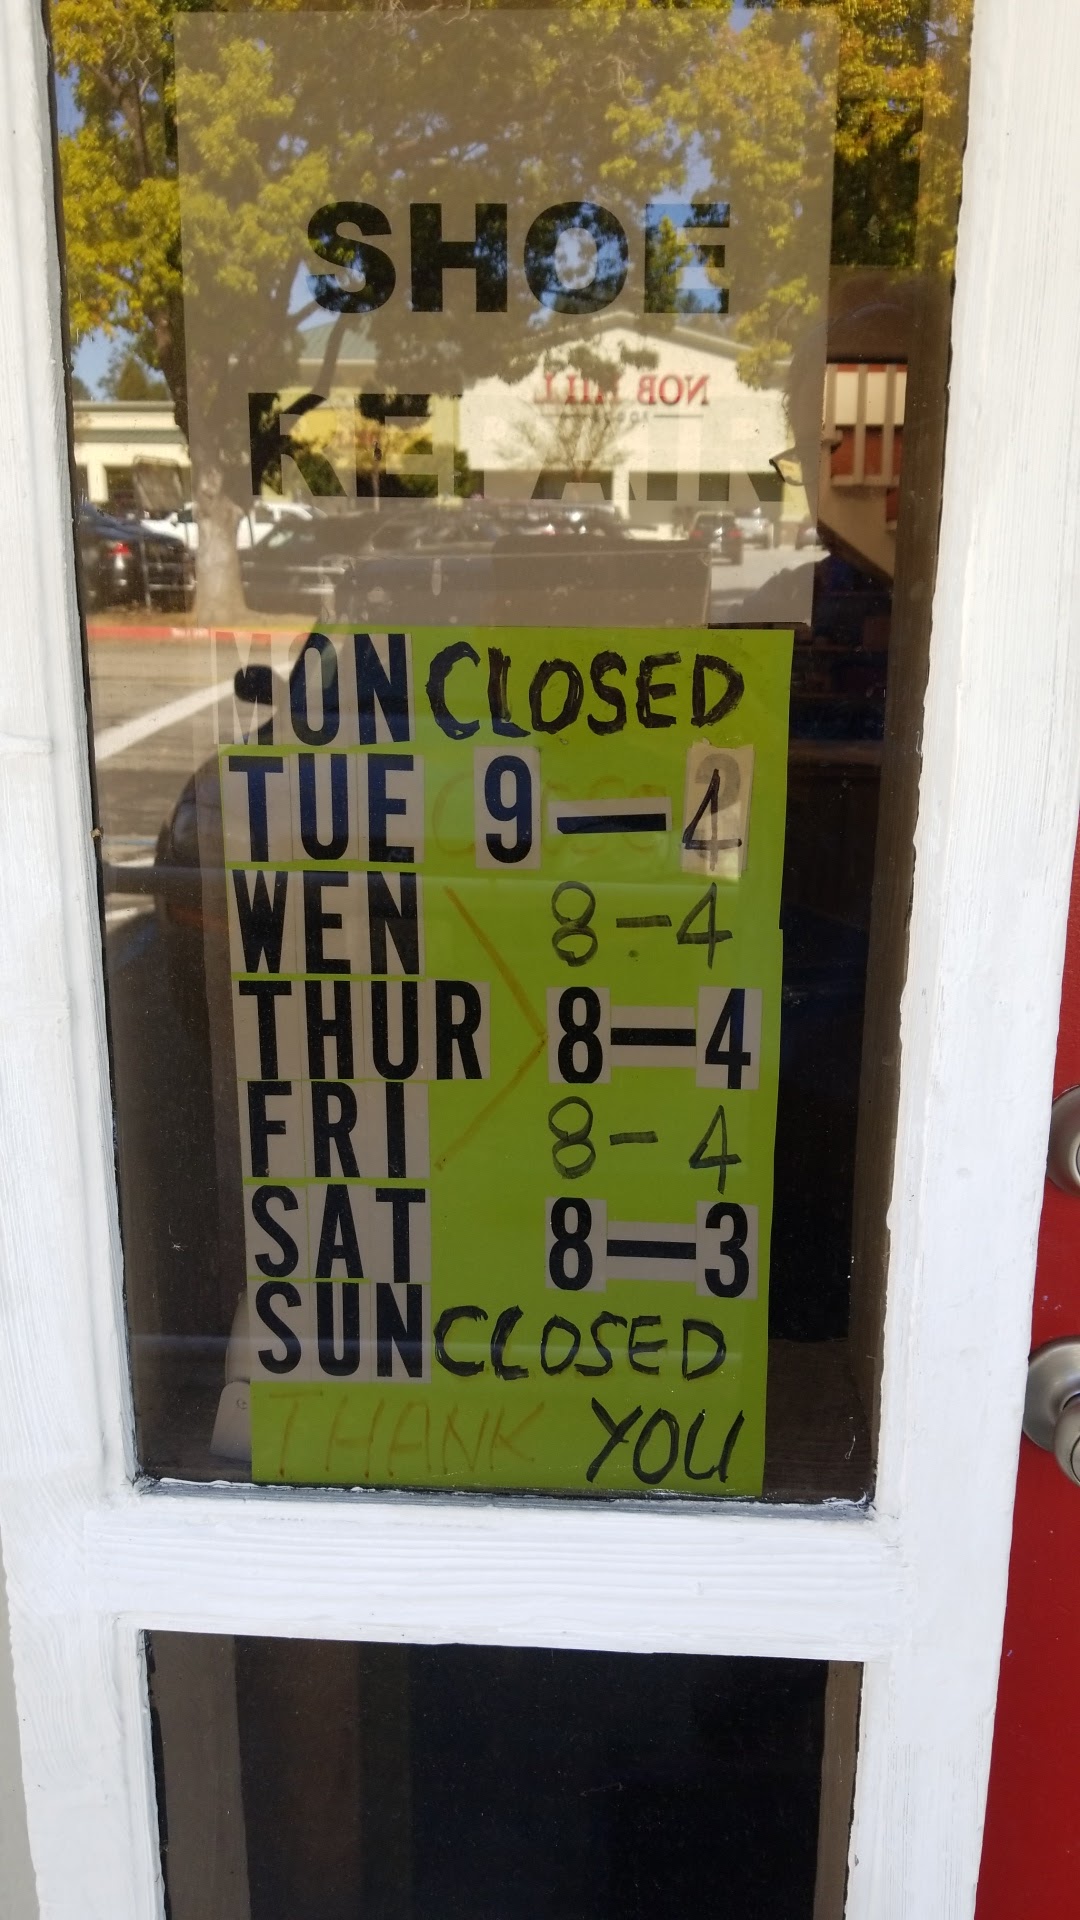 SHOE
REPAIR
NOB HILL
MON CLOSED
TUE 9 — 4
WEN 8 - 4
THUR 8 — 4
FRI 8 - 4
SAT 8 — 3
SUN CLOSED
THANK YOU